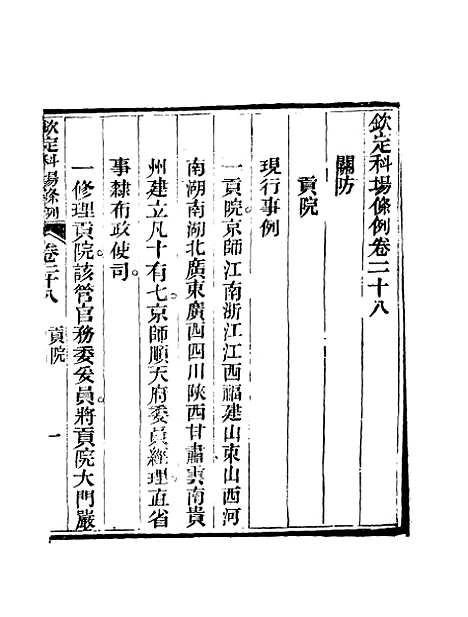 欽定科場條例卷二十八
關防
貢院
現行事例
一貢院京師江南浙江江西福建山東山西河
南湖南湖北廣東廣西四川陝西甘肅雲南貴
州建立凡十有七。京師順天府委員經理。直省
事隸布政使司。
一修理貢院該管官務委妥員。將貢院大門嚴
欽定科場條例 卷二十八 貢院 一